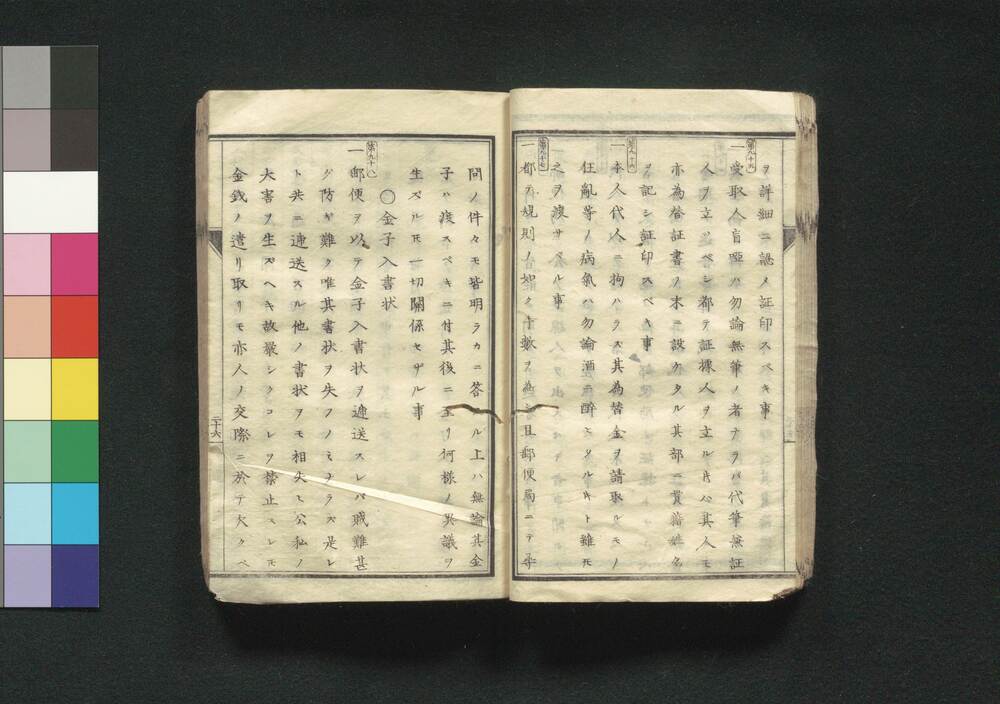 ヲ詳細ニ認メ証印スベキ事
第九十五
一受取人盲唖ハ勿論無筆ノ者ナラバ代筆無証
人ヲ立ツベシ都テ証標人ヲ立ル時ハ其人モ
亦為替証書ノ末ニ設ケタル其部ニ貫籍姓名
ヲ記シ証印スベキ事
第九十六
一本人代人ニ拘ハラズ其為替金ヲ請取ルモノ
狂亂等ノ病氣ハ勿論酒ニ醉ヒタルキト雖モ
之ヲ渡サヾル事
第九十七
一都テ規則ノ如ク十數ヲ為シ且郵便局ニテ尋
問ノ件々モ皆明ラカニ答ルル上ハ無論其金
子ハ渡スベキニ付其後ニ至リ何様ノ異議ヲ
生ズルモ一切關係セザル事
〇金子入書状
第九十八
一郵便ヲ以テ金子入書状ヲ逓送スレバ賊難甚
ダ防ギ難ク唯其書状ヲ失フノミナラズ是レ
ト共ニ逓送スル他ノ書状ヲモ相失ヒ公私ノ
大害ヲ生ズヘキ故嚴シクコレヲ禁止スレモ
金銭ノ遣リ取リモ亦人ノ交際ニ於テ大クベ
二十六